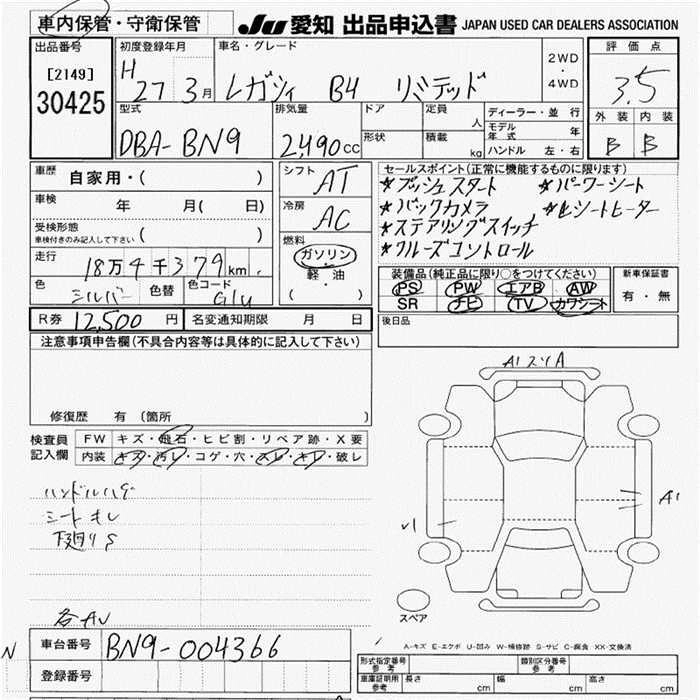 車内保管・守衛保管
JU 愛知 出品申込書 JAPAN USED CAR DEALERS ASSOCIATION
出品番号
[2149]
30425
初度登録年月
H 27 3月
車名・グレード
レガシィ B4 リミテッド
2WD
・
4WD
評価点
3.5
外装 内装
B B
型式
DBA-BN9
排気量
2,490cc
ドア
形状
定員
人
積載
kg
ディーラー・並行
モデル年式 年
ハンドル 左・右
車歴
自家用・( )
車検
年 月( 日)
受検形態
車検付きのみ記入して下さい ( )
走行
18万4千379km
色
シルバー
色替
色コード
G1U
シフト
AT
冷房
AC
燃料
ガソリン
軽・油
( ・ )
セールスポイント(正常に機能するものに限ります)
★プッシュスタート ★パワーシート
★バックカメラ ★レシートヒーター
★ステアリングスイッチ
★クルーズコントロール
装備品(純正品に限り○をつけてください)
PS PW エアB AW
SR ナビ TV カワシート
新車保証書
有・無
R券 12,500 円
名変通知期限 月 日
後日品
注意事項申告欄(不具合内容等は具体的に記入して下さい)
修復歴 有(箇所 )
検査員
記入欄
FW キズ・飛石・ヒビ割・リペア跡・X要
内装 キズ・汚レ・コゲ・穴・スレ・キレ・破レ
ハンドルハゲ
シートキレ
下廻りS
各AU
A1スリA
A1
V1
スペア
A-キズ E-エクボ U-凹み W-補修跡 S-サビ C-腐食 XX-交換済
N
車台番号
BN9-004366
登録番号
型式指定番号
参考
類別区分番号
参考
車庫証明用
参考
長さ cm 幅 cm 高さ cm